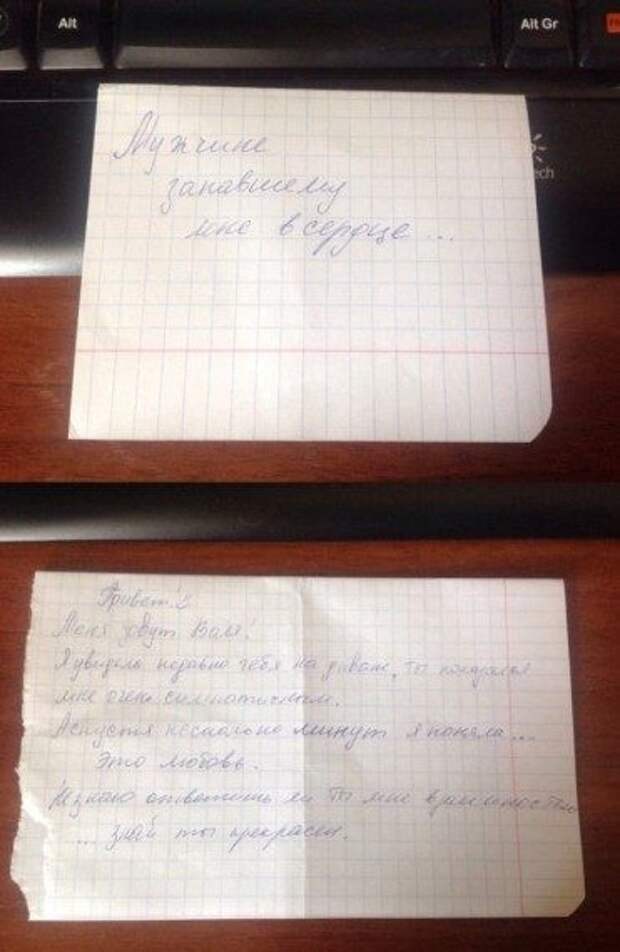 Alt
Alt Gr
ech
Мужчине
запавшему
мне в сердце ...
Привет!
Меня зовут Валя!
Я увидела недавно тебя на диване, ты показался
мне очень симпатичным.
А спустя несколько минут я поняла...
это любовь.
Не знаю ответишь ли ты мне взаимностью
... знай ты прекрасен.